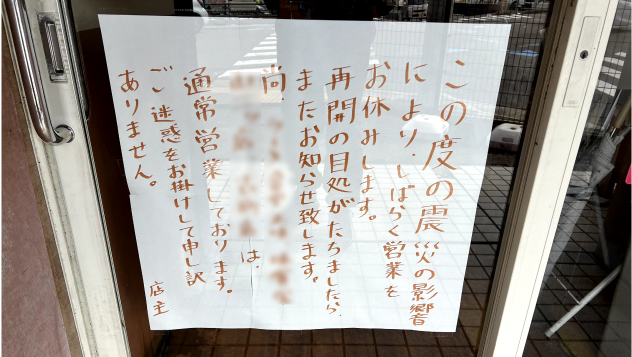 この度の震災の影響
により、しばらく営業を
お休みします。
再開の目処がたちましたら、
またお知らせ致します。
尚、
は、
通常営業しております。
ご迷惑をお掛けして申し訳
ありません。
店主